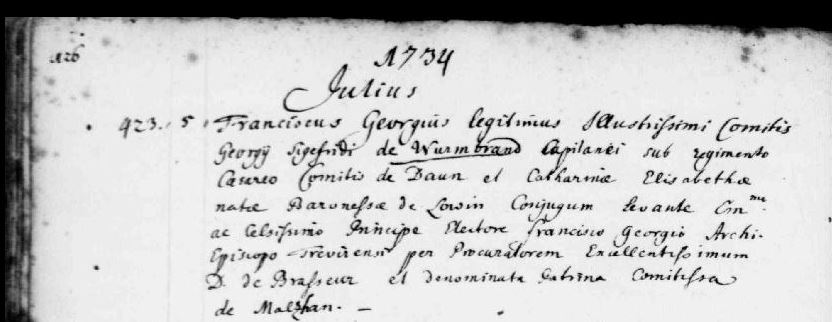 126
1734
Julius
423. 5. Franciscus Georgius legitimus Illustrissimi Comitis
Georgÿ Sigefridi de Wurmbrand Capitanei sub regimento
Cæsareo Comitis de Daun et Catharinæ Elisabethæ
natæ Baronessæ de Conjugum levante Em̅mo
ac Celsissimo Principe Electore Francisco Georgio Archi-
Episcopo Trevirensi per Procuratorem Excellentissimum
D. de Brasseur et denominata Patrina Comitissa
de Malzhan. —